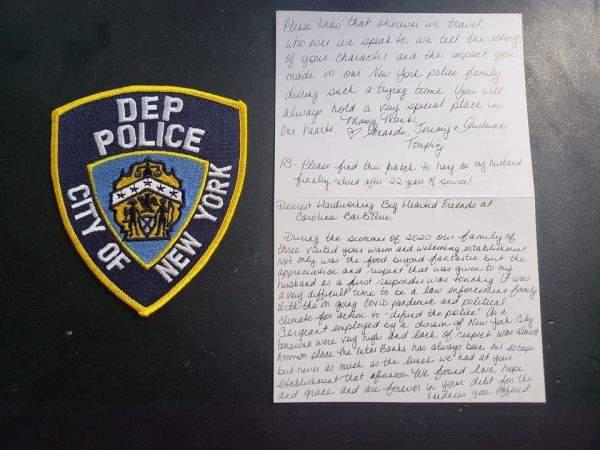 DEP
POLICE
CITY OF
NEW YORK
Please know that wherever we travel,
who ever we speak to, we tell the story
of your character and the impact you
made on our New York police family
during such a trying time. You will
always hold a very special place in
our hearts Many Thanks,
♡ Jeremy &
PS- Please find this patch to hang as my husband
finally retired after 22 years of service!
Dearest Hardworking Big Hearted Friends at
Carolina Bar-B-Que,
During the summer of 2020 our family of
three visited your warm and welcoming establishment.
Not only was the food beyond fantastic but the
appreciation and respect that was given to my
husband as a first responder was touching. It was
a very difficult time to be a law enforcement family
with the on going COVID pandemic and political
climate for action to "defund the police". As a
Sergeant employed by a division of New York City
tensions were very high and lack of respect was almost
common place. The Outer Banks has always been our escape
but never as much as the lunch we had at your
establishment that afternoon. We found love, hope
and grace and are forever in your debt for the
kindness you offered.